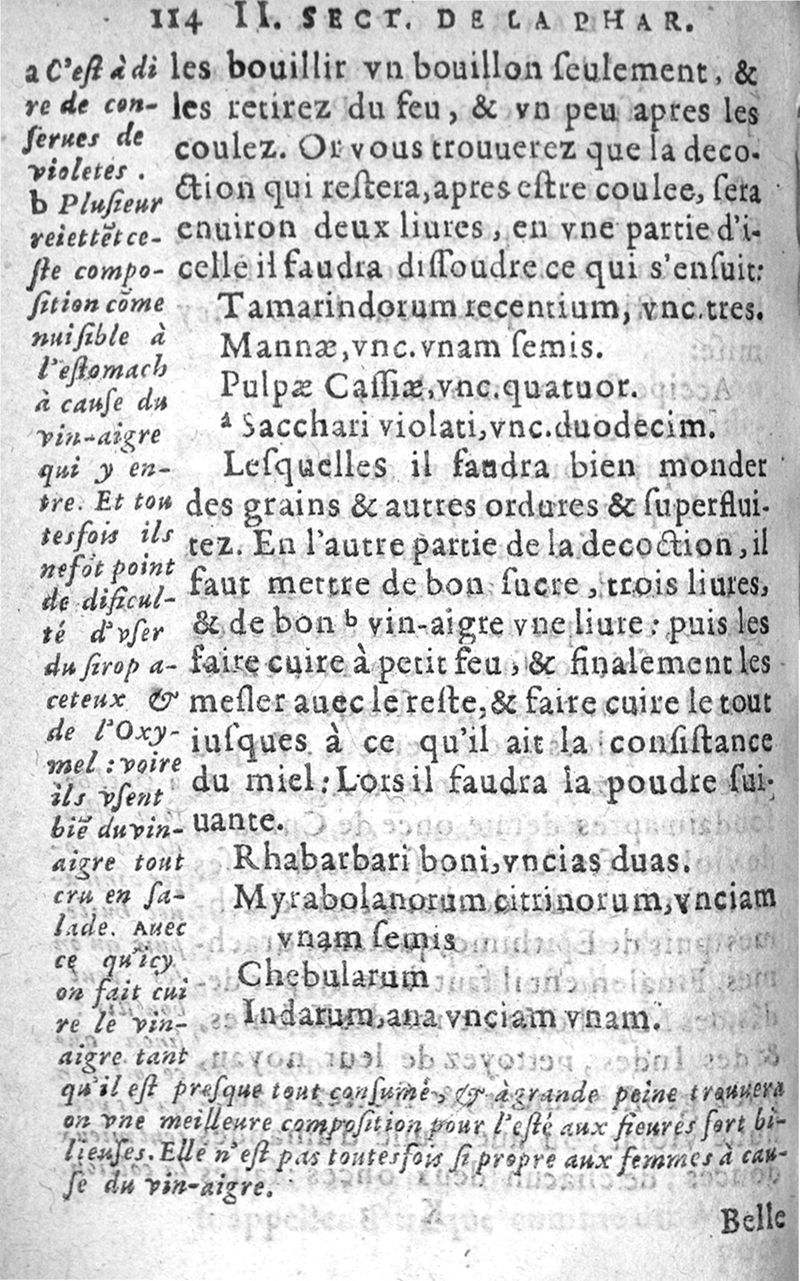 114 II. SECT. DE LA PHAR.
les bouillir vn bouillon ſeulement, &
les retirez du feu, & vn peu apres les
coulez. Or vous trouuerez que la deco-
ction qui reſtera, apres eſtre coulee, ſera
enuiron deux liures, en vne partie d'i-
celle il faudra diſſoudre ce qui s'enſuit:
Tamarindorum recentium, vnc.tres.
Mannæ, vnc. vnam ſemis.
Pulpæ Caſſiæ, vnc. quatuor.
a Sacchari violati, vnc. duodecim.
Leſquelles il faudra bien monder
des grains & autres ordures & ſuperflui-
tez. En l'autre partie de la decoction, il
faut mettre de bon ſucre, trois liures,
& de bon b vin-aigre vne liure: puis les
faire cuire à petit feu, & finalement les
meſler auec le reſte, & faire cuire le tout
iuſques à ce qu'il ait la conſiſtance
du miel: Lors il faudra la poudre ſui-
uante.
Rhabarbari boni, vncias duas.
Myrabolanorum citrinorum, vnciam
vnam ſemis
Chebularum
Indarum, ana vnciam vnam.
a C'eſt à di
re de con-
ſerues de
violetes.
b Pluſieur
reiettẽt ce-
ſte compo-
ſition cõme
nuiſible à
l'eſtomach
à cauſe du
vin-aigre
qui y en-
tre. Et tou
tesfois ils
ne fõt point
de dificul-
té d'vſer
du ſirop a-
ceteux &
de l'Oxy-
mel: voire
ils vſent
biẽ du vin-
aigre tout
cru en ſa-
lade. Auec
ce qu'icy
on fait cui
re le vin-
aigre tant
qu'il eſt preſque tout conſumé, & à grande peine trouuera
on vne meilleure compoſition pour l'eſté aux fieures fort bi-
lieuſes. Elle n'eſt pas toutesfois ſi propre aux femmes à cau-
ſe du vin-aigre.
Belle